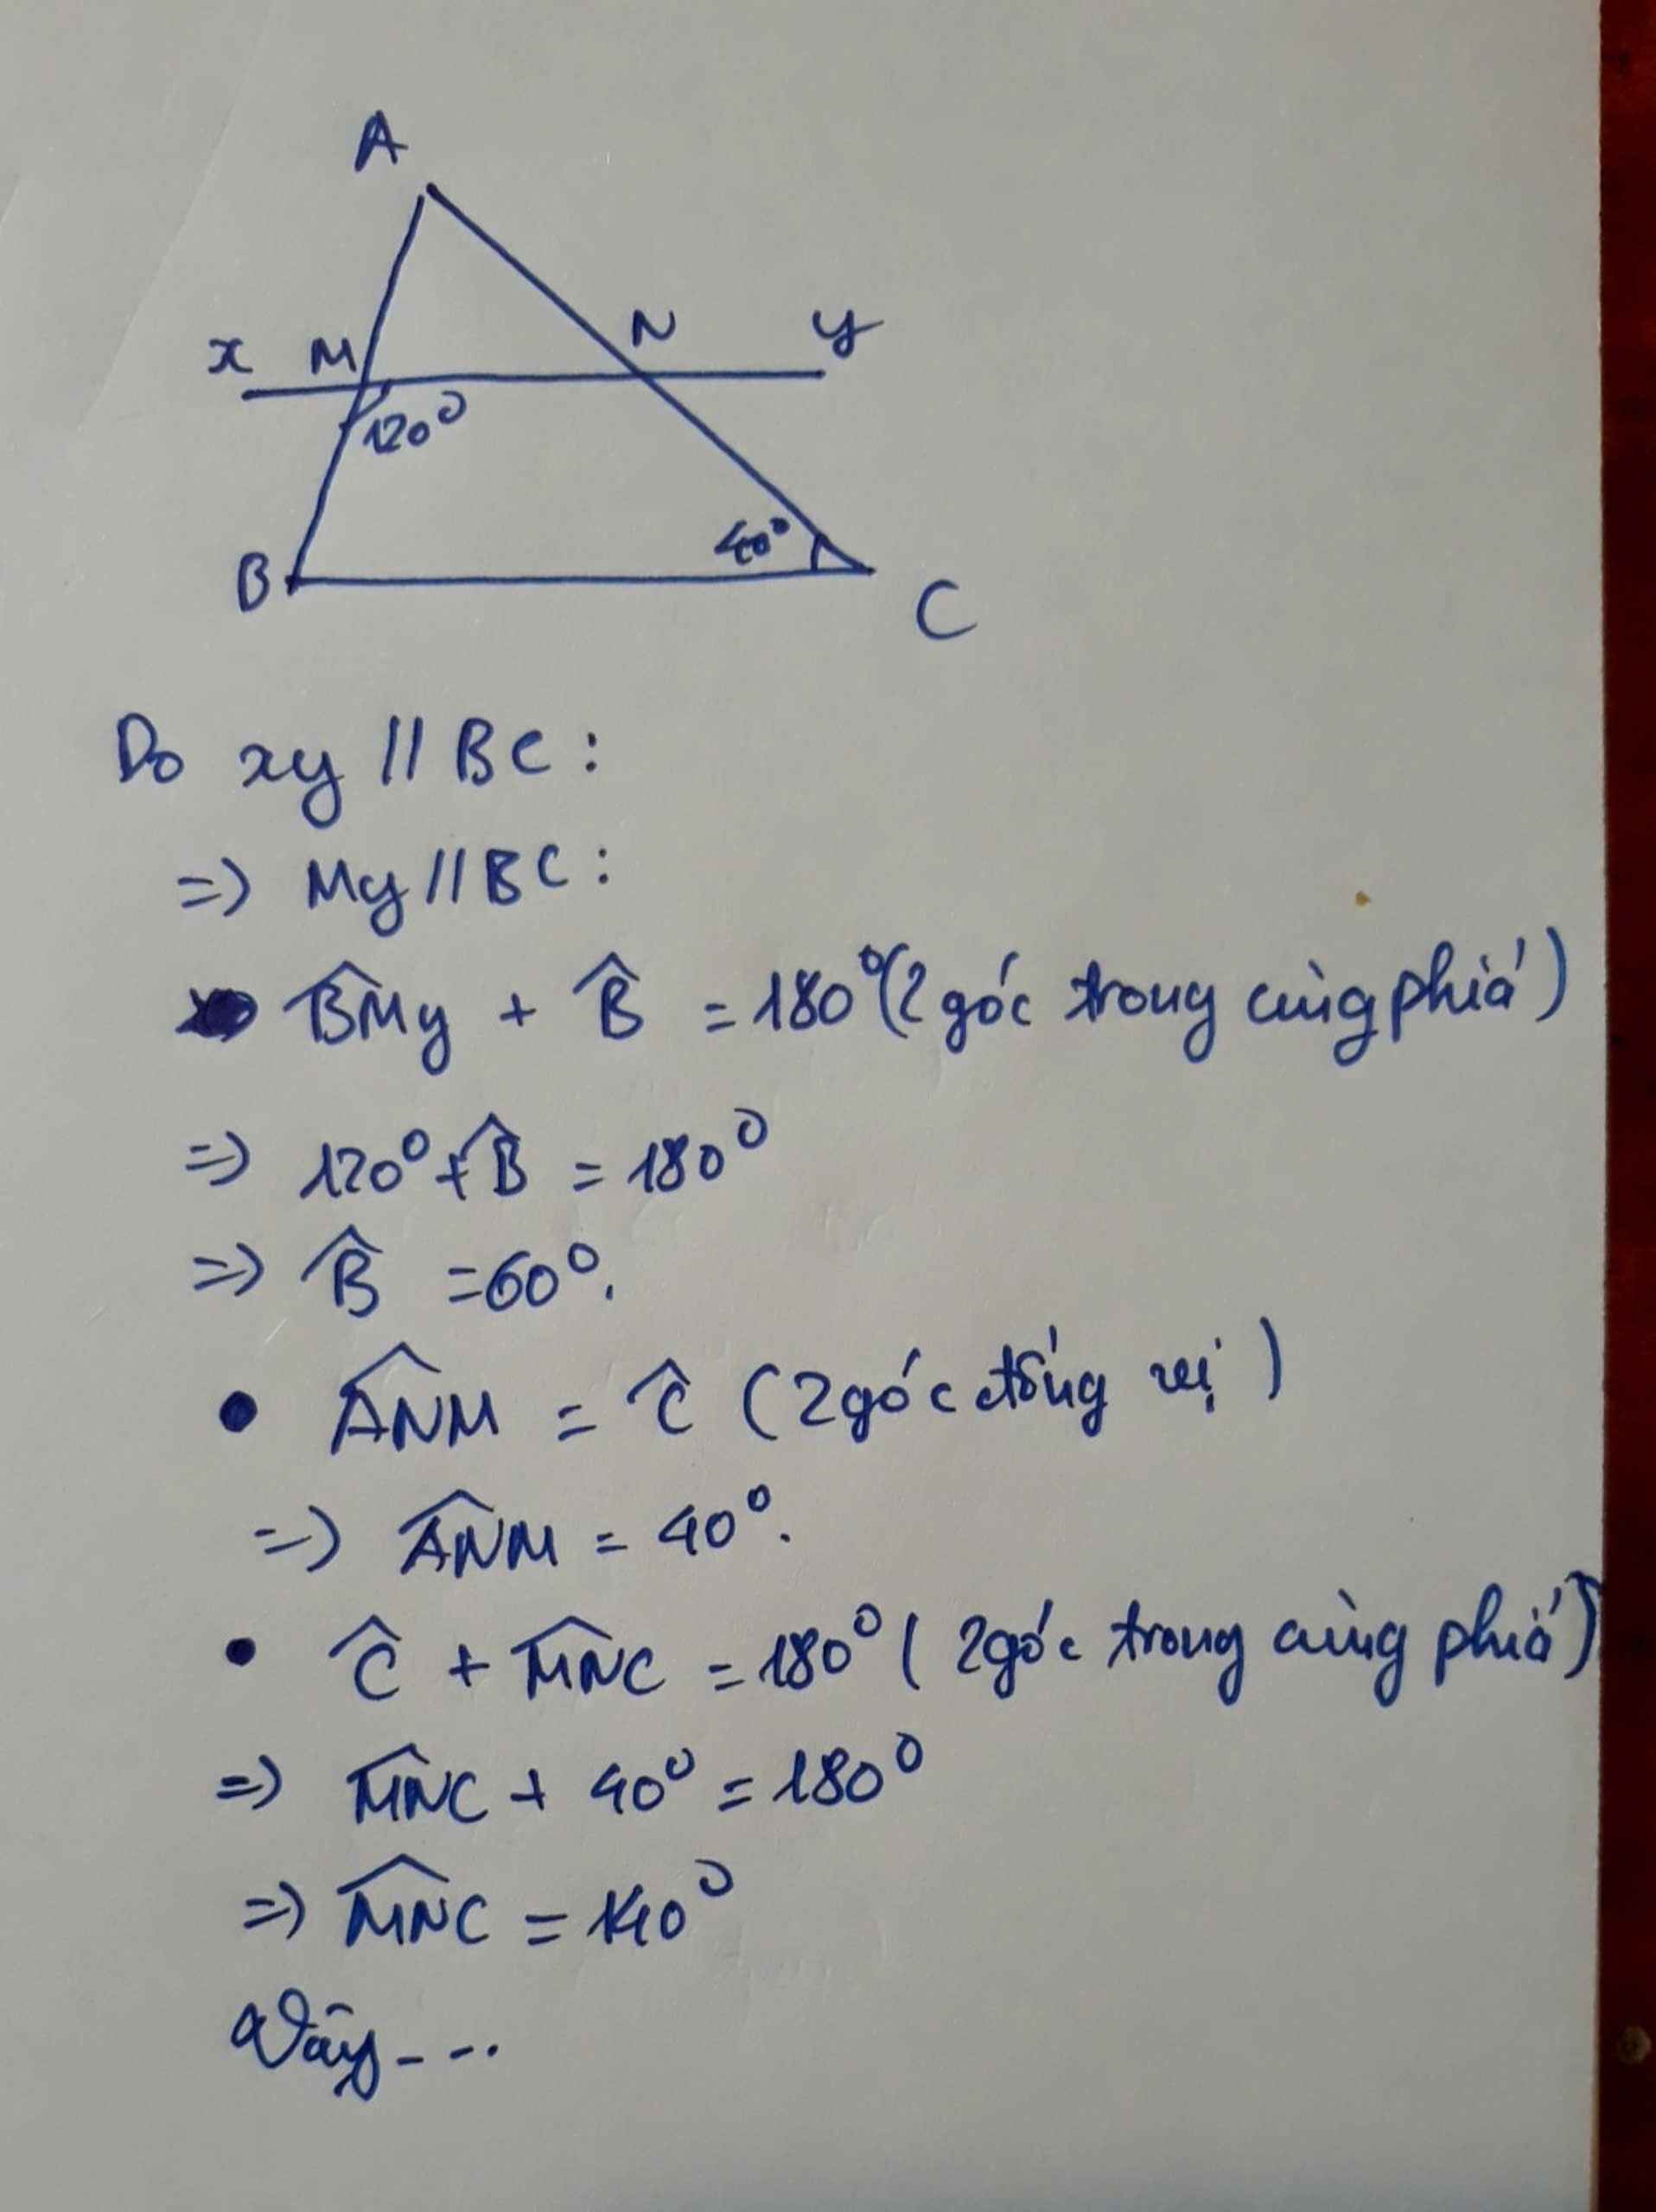 A
x M N y
120°
40°
B C
Do xy // BC :
=> My // BC :
B̂My + B̂ = 180° (2 góc trong cùng phía)
=> 120° + B̂ = 180°
=> B̂ = 60°.
• ÂNM = Ĉ (2 góc đồng vị)
=> ÂNM = 40°.
• Ĉ + M̂NC = 180° (2 góc trong cùng phía)
=> M̂NC + 40° = 180°
=> M̂NC = 140°
Vậy - - -.